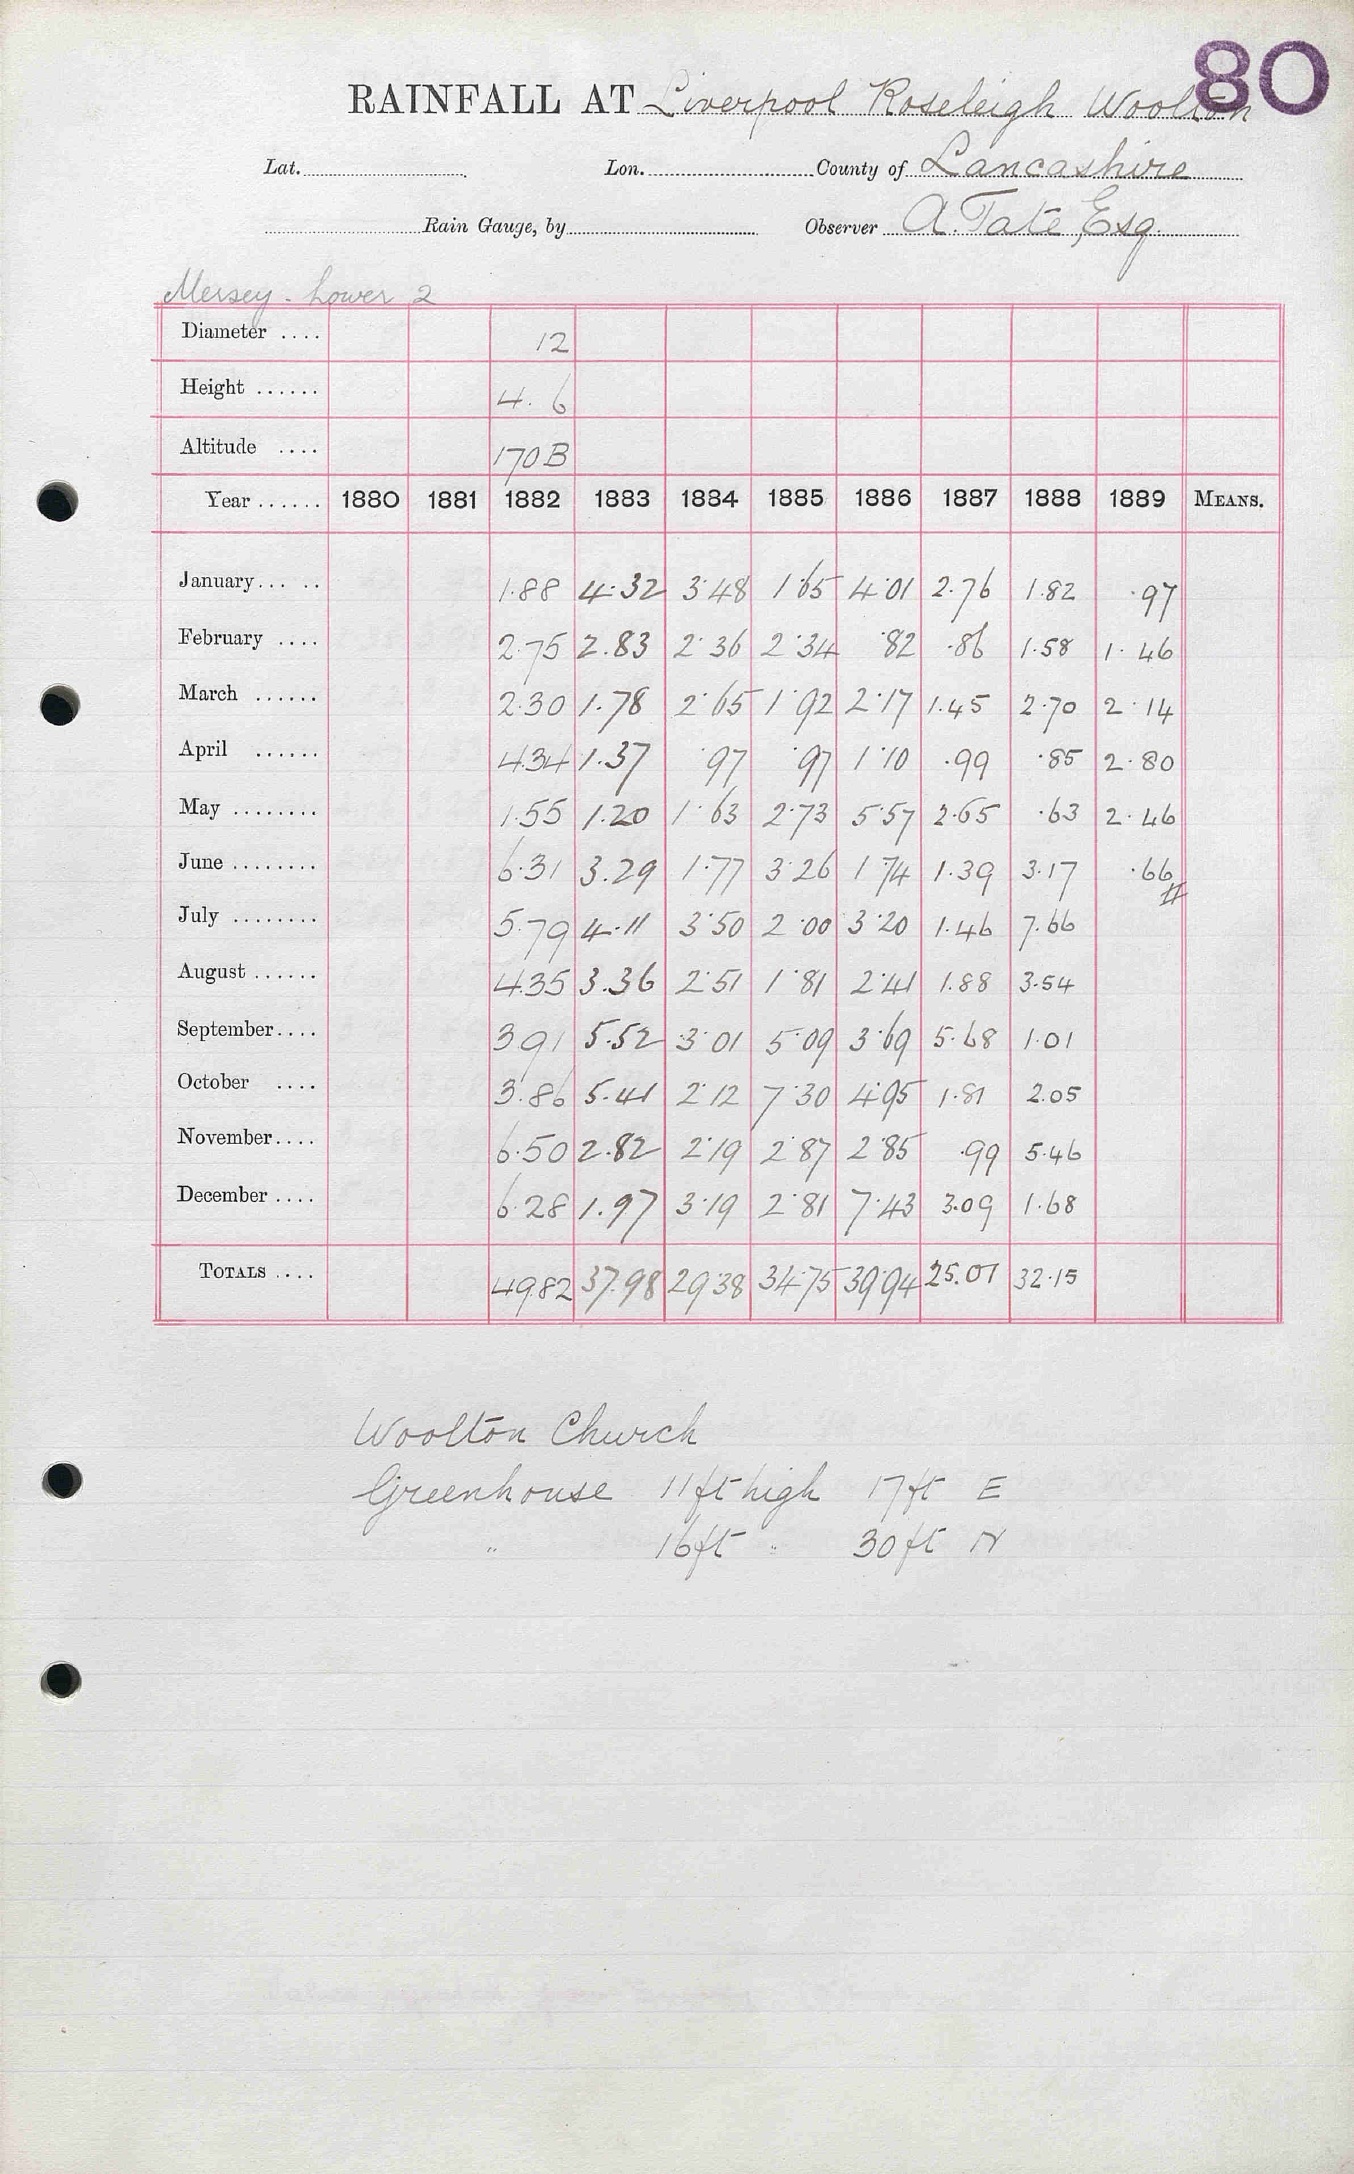 80
RAINFALL AT Liverpool Roseleigh Woolton
Lat. Lon. County of Lancashire
Rain Gauge, by Observer A. Tate, Esq.
Mersey - Lower 2
Diameter .... 12
Height ...... 4. 6
Altitude .... 170 B
Year ...... 1880 1881 1882 1883 1884 1885 1886 1887 1888 1889 MEANS.
January... .. 1.88 4.32 3.48 1.65 4.01 2.76 1.82 .97
February .... 2.75 2.83 2.36 2.34 .82 .86 1.58 1.46
March ...... 2.30 1.78 2.65 1.92 2.17 1.45 2.70 2.14
April ...... 4.34 1.37 .97 .97 1.10 .99 .85 2.80
May ........ 1.55 1.20 1.63 2.73 5.57 2.65 .63 2.46
June ........ 6.31 3.29 1.77 3.26 1.74 1.39 3.17 .66 #
July ........ 5.79 4.11 3.50 2.00 3.20 1.46 7.66
August ...... 4.35 3.36 2.51 1.81 2.41 1.88 3.54
September.... 3.91 5.52 3.01 5.09 3.69 5.68 1.01
October .... 3.86 5.41 2.12 7.30 4.95 1.81 2.05
November.... 6.50 2.82 2.19 2.87 2.85 .99 5.46
December .... 6.28 1.97 3.19 2.81 7.43 3.09 1.68
TOTALS .... 49.82 37.98 29.38 34.75 39.94 25.01 32.15
Woolton Church
Greenhouse 11 ft high 17 ft E
" 16 ft " 30 ft N